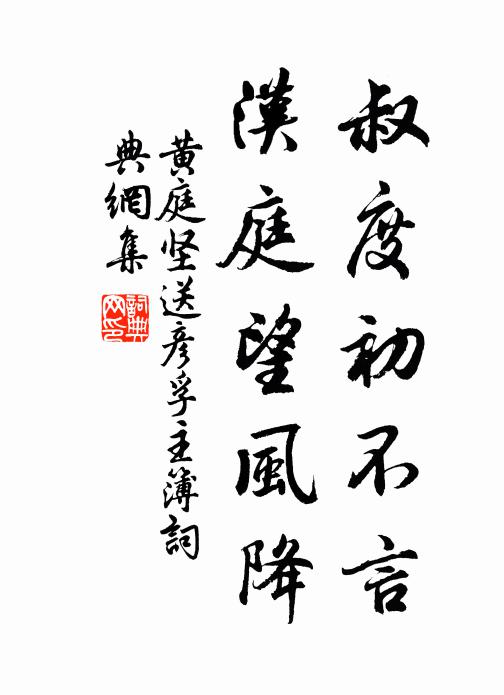 叔度初不言
漢庭望風降
黄庭坚送彦孚主簿詞
典網集
詞典网印